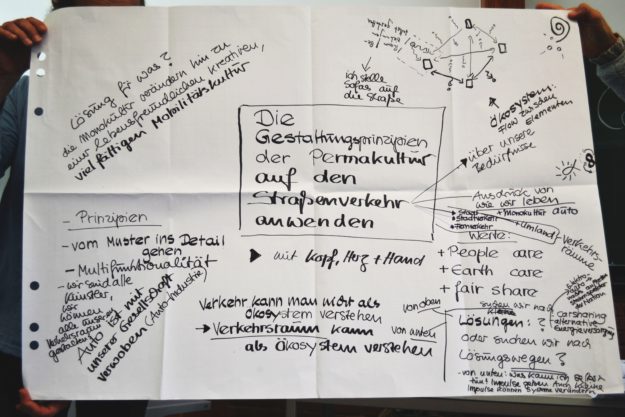 Lösung für was?
die Monokultur verändern hin zu
einer lebensfreundlichen, kreativen,
vielfältigen Mobilitätskultur
ich stelle
Sofas auf
die Straße
Ökosystem:
Flow zwischen
Elementen
über unsere
Bedürfnisse
Die
Gestaltungsprinzipien
der Permakultur
auf den
Straßenverkehr
anwenden
mit Kopf, Herz + Hand
Ausdruck von
wie wir leben
+ Monokultur Auto
+ Umland-Verkehrs-
räume
Werte:
+ People care
+ Earth care
+ fair share
- Prinzipien
- vom Muster ins Detail
gehen
- Multifunktionalität
- wir sind alle
Künstler,
wir
können
alle unseren
Verkehrsraum
gestalten
Auto ist mit
unserer Gesellschaft
verwoben (Autoindustrie)
Verkehr kann man nicht als
Ökosystem verstehen
→ Verkehrsraum kann
als Ökosystem verstehen
von oben
von unten
suchen wir nach
Lösungen: ?
oder suchen wir nach
Lösungswegen?
carsharing
alternative
Energieversorgung
- von unten: Was kann ich selbst
tun? Impulse geben. Auch kleine
Impulse können Systeme verändern